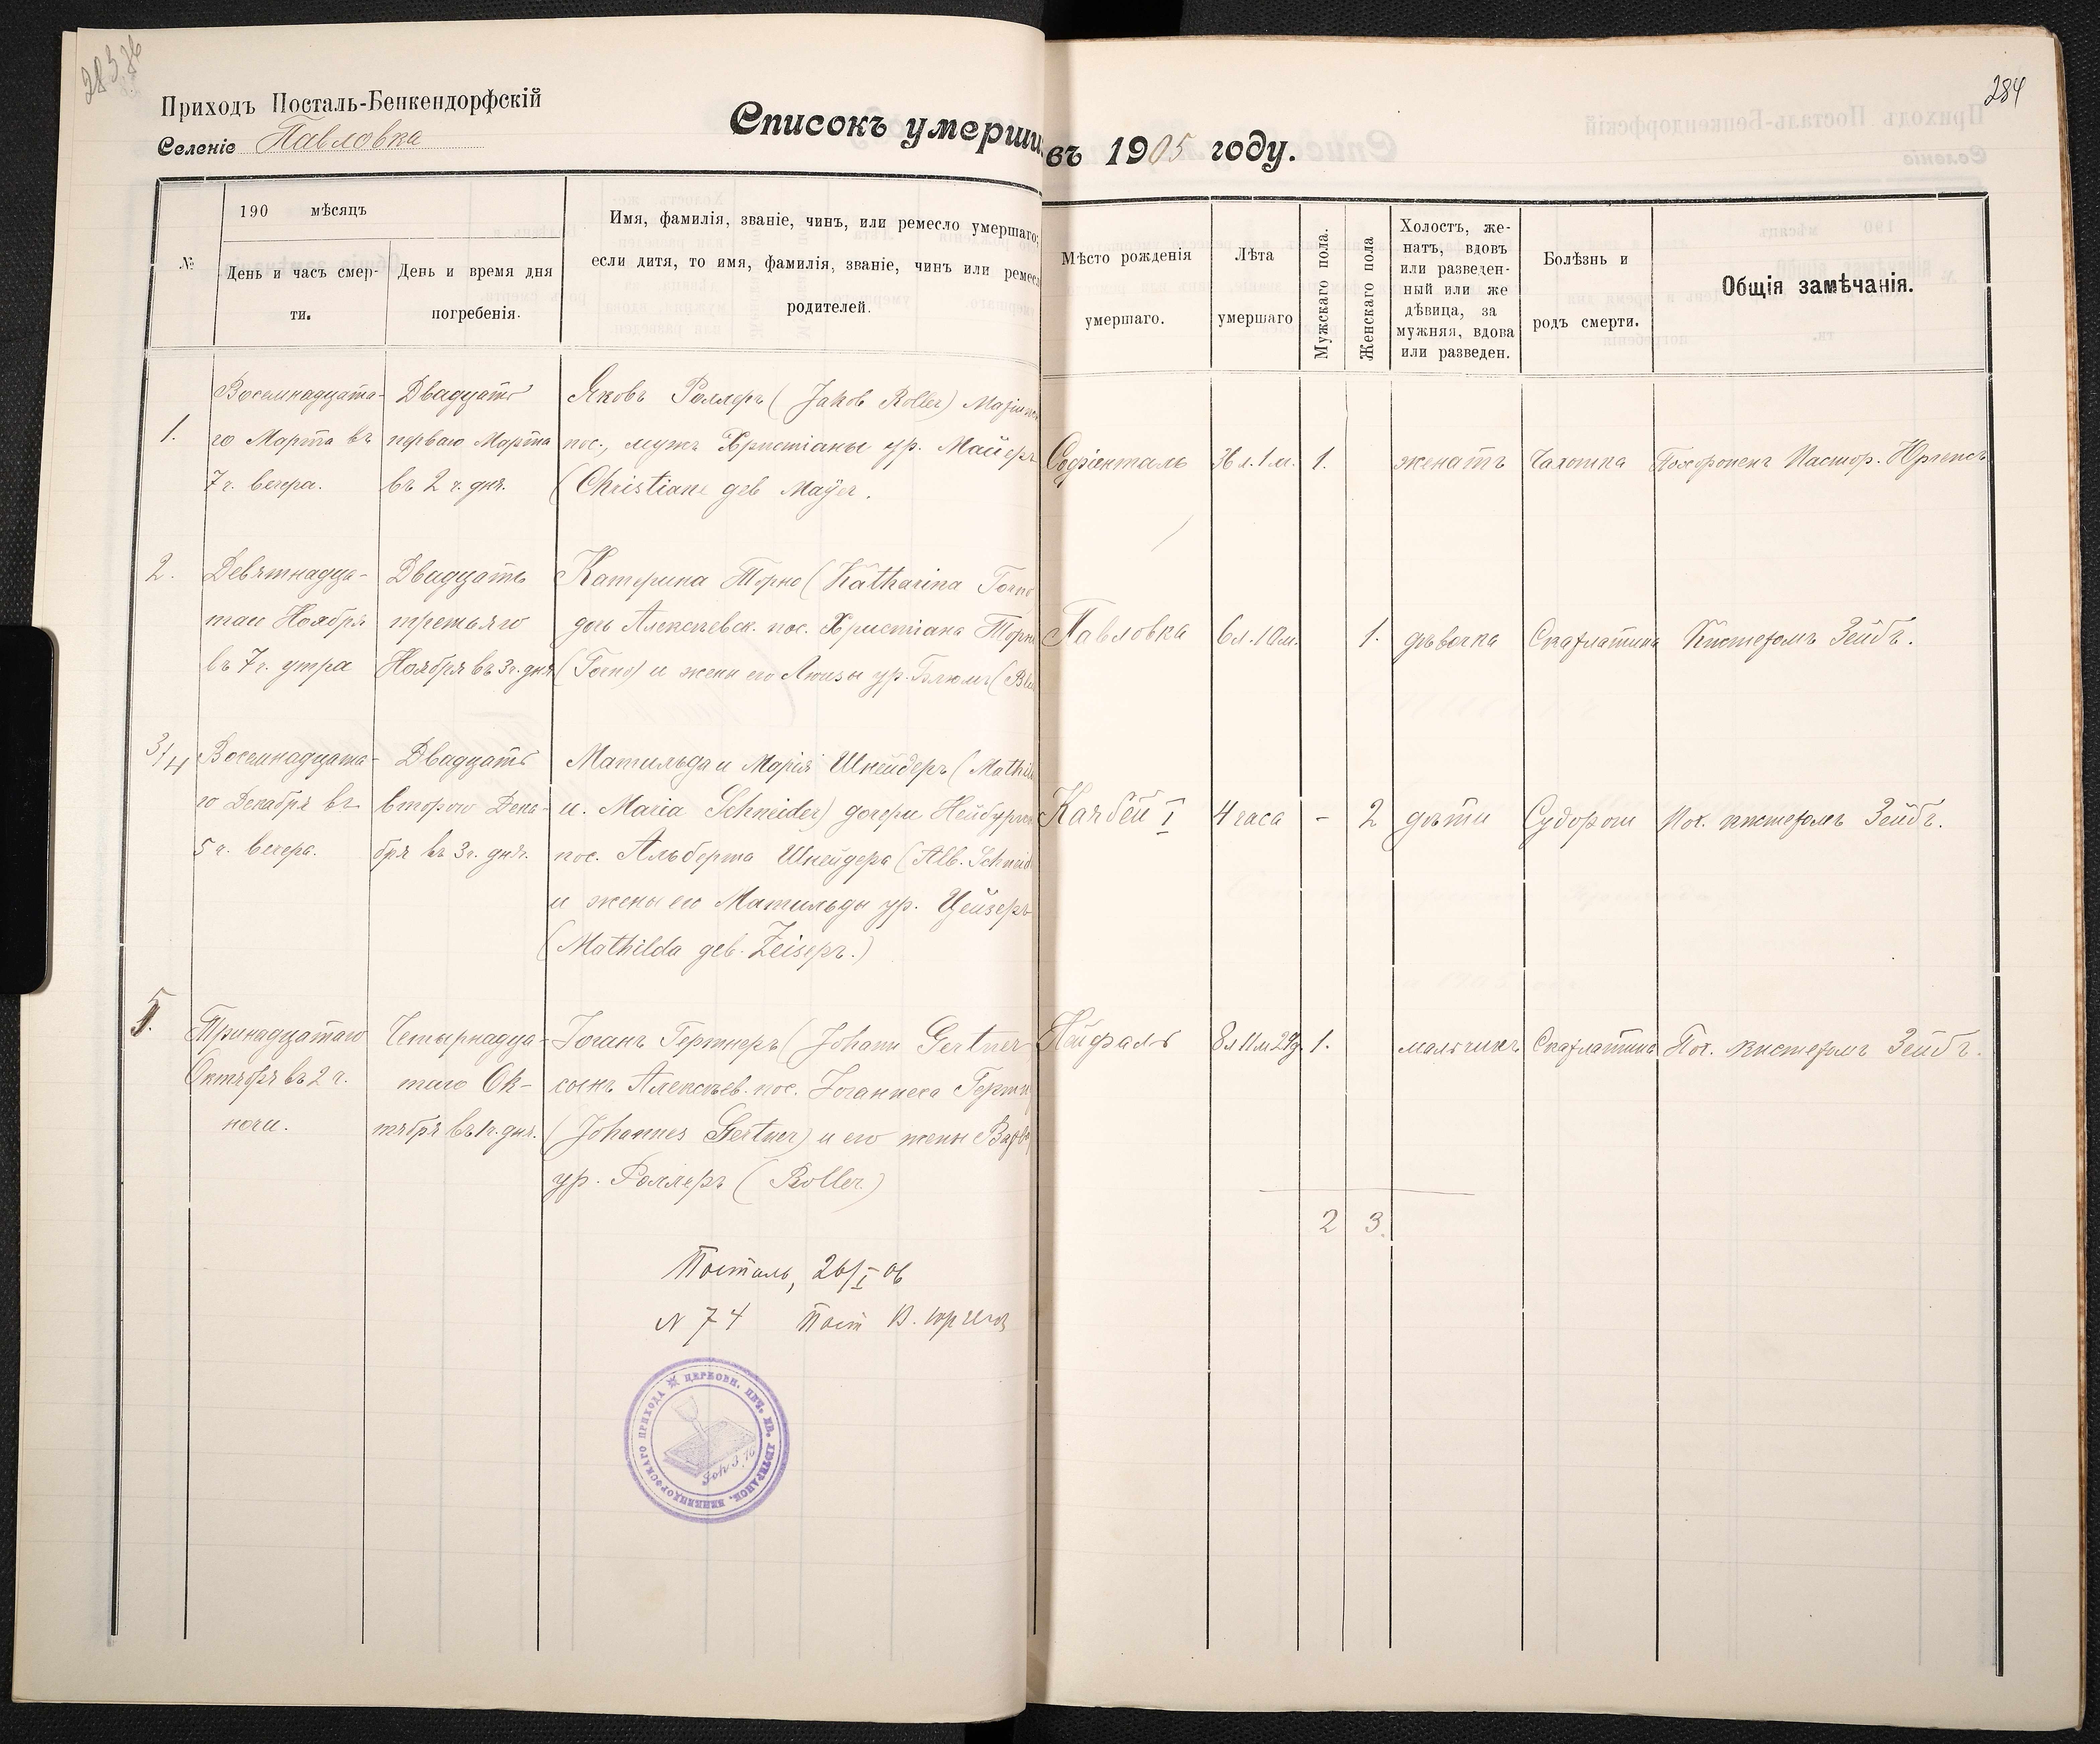 284
Приходъ Посталь-Бенкендорфскій
Селеніе Павловка
Списокъ умерши
въ 1905 году.
№
190 мѣсяцъ
День и часъ смер-
ти.
День и время дня
погребенія.
Имя, фамилія, званіе, чинъ, или ремесло умершаго;
если дитя, то имя, фамилія, званіе, чинъ или ремесл
родителей.
Мѣсто рожденія
умершаго.
Лѣта
умершаго
Мужскаго пола.
Женскаго пола
Холостъ, же-
натъ, вдовъ
или разведен-
ный или же
дѣвица, за
мужняя, вдова
или разведен.
Болѣзнь и
родъ смерти.
Общія замѣчанія.
1.
Восемнадцата-
го Марта въ
7 ч. вечера.
Двадцать
перваго Марта
въ 2 ч. дня.
Яковъ Роллеръ (Jakob Roller)
пос., мужъ Христіаны ур. Майеръ
(Christiane geb Mayer.
Софіенталь
36 л. 1 м.
1.
женатъ
Чахотка
Похороненъ Пастор. Юргенсъ
2.
Девятнадца-
таго Ноября
въ 7 ч. утра
Двадцать
третьяго
Ноября въ 3 ч. дня
Катерина Торно (Katharina Torno
дочь Алексѣевск. пос. Христіана Торно
(Torno) и жены его Люизы ур. Блюмъ (Bl
Павловка
6 л. 10 м.
1.
дѣвочка
Скарлатина
Кистеромъ Зейбъ.
3/4
Восемнадцата-
го Декабря въ
5 ч. вечера.
Двадцать
второго Дека-
бря въ 3 ч. дня.
Матильда и Марія Шнейдеръ (Mathil
u. Maria Schneider) дочери Нейбург
пос. Альберта Шнейдера (Alb. Schneid
и жены его Матильды ур. Цейзеръ
(Mathilda geb. Zeiserъ.)
Качбей I
4 часа
-
2
дѣти
Судороги
Пох. кистеромъ Зейбъ.
5.
Тринадцатаго
Октября въ 2 ч.
ночи.
Четырнадца-
таго Ок-
тября въ 1 ч. дня.
Іоганъ Гертнеръ (Johann Gertner
сынъ Алексѣев. пос. Іоганнеса Гертн
(Johannes Gertner) и его жены Варва
ур. Роллеръ (Roller)
Нейфаль
8 л 11 м 29 д.
1.
мальчикъ
Скарлатина
Пох. кистеромъ Зейбъ.
2 3.
Посталь, 26/I 06
N 74 Паст
ЦЕРКОВН. ПЕЧ. ЕВ. ЛЮТЕРАНСК. БЕНКЕНДОРФСКАГО ПРИХОДА
Joh 3, 16